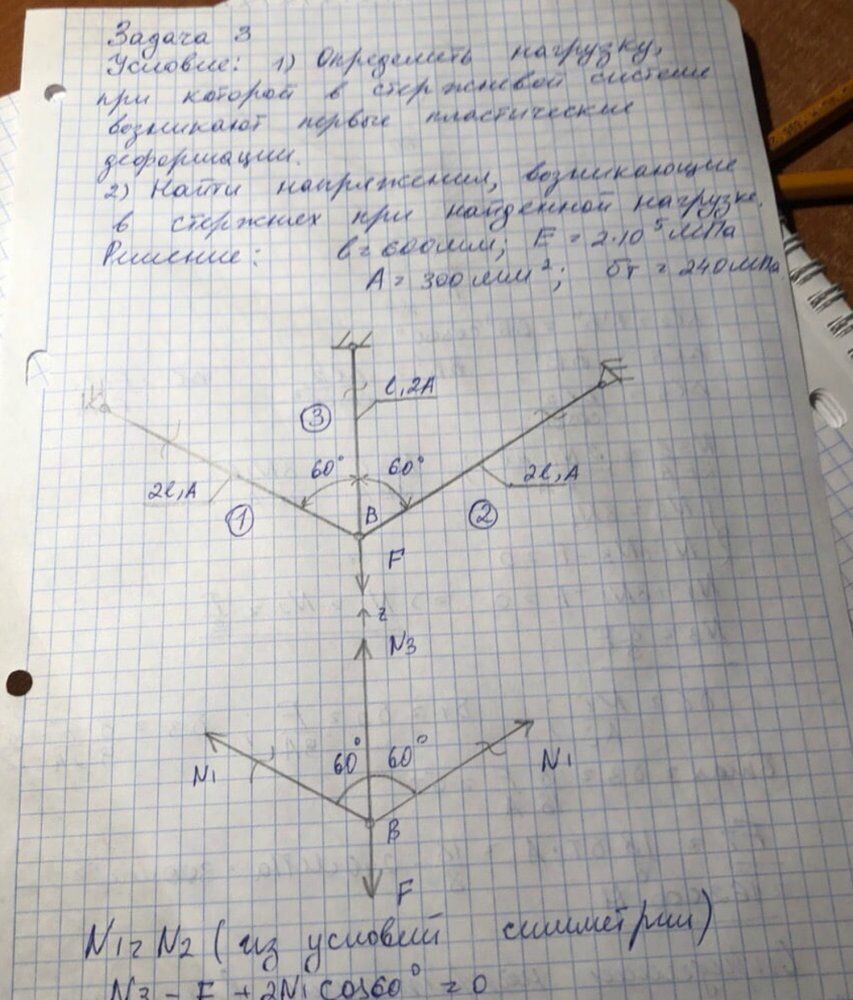 Задача 3
Условие: 1) Определить нагрузку,
при которой в стержневой системе
возникают первые пластические
деформации.
2) Найти напряжения, возникающие
в стержнях при найденной нагрузке.
Решение: l = 600 мм; E = 2·10⁵ МПа
A = 300 мм²; σт = 240 МПа
l, 2A
3
60° 60°
2l, A
2l, A
1
B
2
F
z
N3
60° 60°
N1
N1
B
F
N1 = N2 (из условий симметрии)
N3 - F + 2N1 cos60° = 0